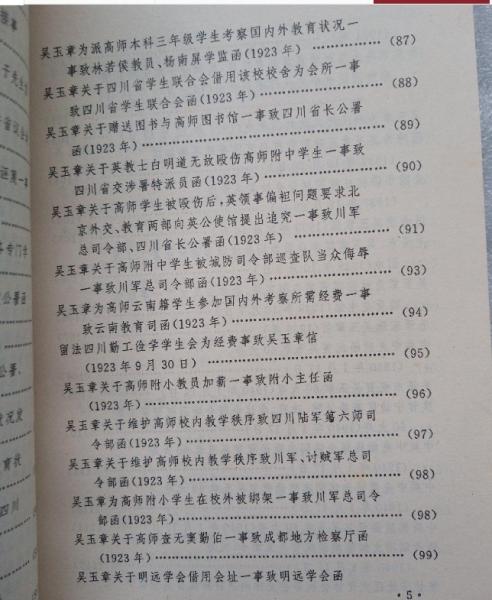 吴玉章为派高师本科三年级学生考察国内外教育状况一
事致林若侯教员、杨南屏学监函(1923年) ………………(87)
吴玉章关于四川省学生联合会借用该校校舍为会所一事
致四川省学生联合会函(1923年) ………………(88)
吴玉章关于赠送图书与高师图书馆一事致四川省长公署
函(1923年) ………………(89)
吴玉章关于英教士白明道无故殴伤高师附中学生一事致
四川省交涉署特派员函(1923年) ………………(90)
吴玉章关于高师学生被殴伤后,英领事偏袒问题要求北
京外交、教育两部向英公使馆提出追究一事致川军
总司令部、四川省长公署函(1923年) ………………(91)
吴玉章关于高师附中学生被城防司令部巡查队当众侮辱
一事致川军总司令部函(1923年) ………………(93)
吴玉章为高师云南籍学生参加国内外考察所需经费一事
致云南教育司函(1923年) ………………(94)
留法四川勤工俭学学生会为经费事致吴玉章信
(1923年9月30日) ………………(95)
吴玉章关于高师附小教员加薪一事致附小主任函
(1923年) ………………(96)
吴玉章关于维护高师校内教学秩序致四川陆军第六师司
令部函(1923年) ………………(97)
吴玉章关于维护高师校内教学秩序致川军、讨贼军总司
令部函(1923年) ………………(98)
吴玉章为高师附小学生在校外被绑架一事致川军总司令
部函(1923年) ………………(98)
吴玉章关于高师查无窦勤伯一事致成都地方检察厅函
(1923年) ………………(99)
吴玉章关于明远学会借用会址一事致明远学会函
· 5 ·